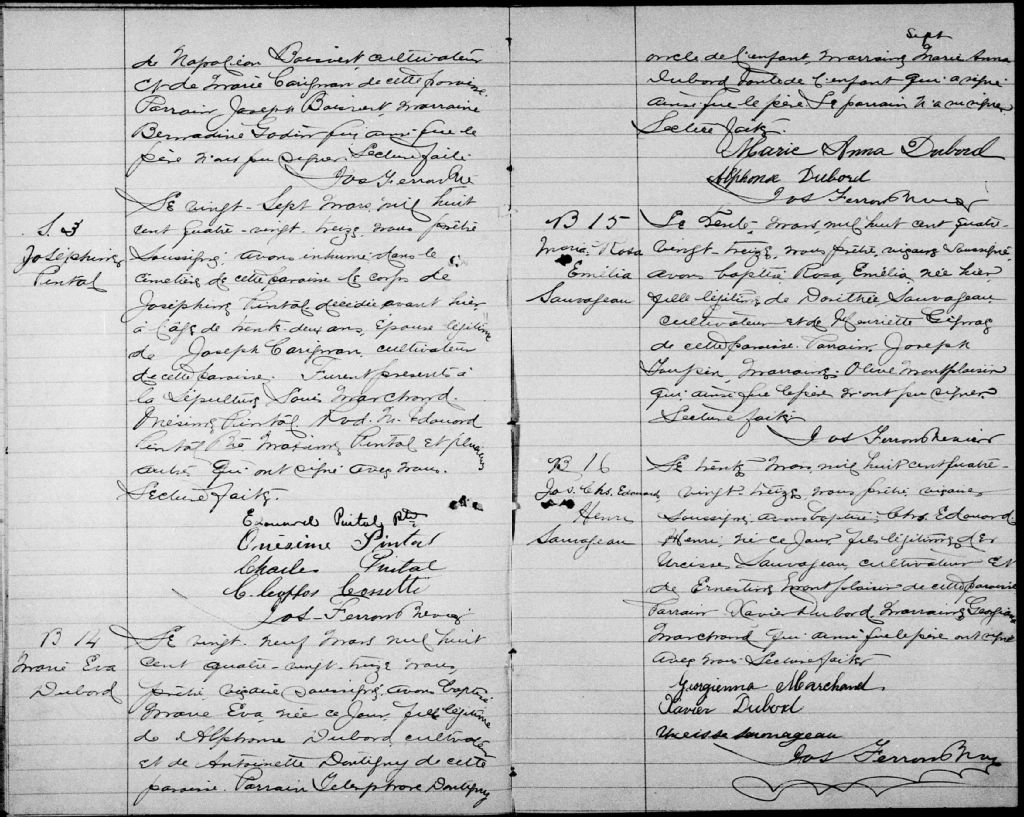 de Napoléon Boisvert cultivateur
et de Marie Carignan de cette paroisse.
Parrain Joseph Boisvert, marraine
Bernadine Godin qui ainsi que le
père n'ont pu signer. Lecture faite.
Jos Ferron Ptre
S. 3
Joséphine
Pintal
Le vingt-sept Mars, mil huit
cent quatre-vingt treize, nous prêtre
Soussigné avons inhumé dans le
cimetière de cette paroisse le corps de
Joséphine Pintal décédée avant hier,
à l'âge de trente-deux ans, épouse légitime
de Joseph Carignan, cultivateur
de cette paroisse. Furent présents à
la sépulture Louis Marchand.
Onésime Pintal, Rvd. M. Edouard
Pintal Ptre Maxime Pintal et plusieurs
autres qui ont signé avec nous.
Lecture faite.
Edouard Pintal Ptre
Onésime Pintal
Charles Pintal
Cleophos Cossette
Jos-Ferron Ptre vicaire
B 14
Marie Eva
Dubord
Le vingt-neuf Mars mil huit
cent quatre-vingt-treize nous
prêtre vicaire soussigné, avons baptisé
Marie Eva née ce jour, fille légitime
de Alphonse Dubord cultivateur
et de Antoinette Dontigny de cette
paroisse. Parrain Télesphore Dontigny
Sept
oncle de l'enfant, marraine Marie Anna
Dubord tante de l'enfant qui a signé
ainsi que le père. Le parrain n'a su signer.
Lecture faite.
Marie Anna Dubord
Alphonse Dubord
Jos Ferron Ptre vicaire
B 15
Marie Rosa
Emélia
Sauvageau
Le trente Mars, mil huit cent quatre-
vingt treize, nous prêtre, vicaire soussigné,
avons baptisé Rosa, Emélia, née hier,
fille légitime de Dorithée Sauvageau
cultivateur et de Henriette
de cette paroisse. Parrain, Joseph
Toupin, Marraine, Olive Montplaisir
qui ainsi que le père n'ont pu signer.
Lecture faite
Jos Ferron Ptre vicaire
B 16
Jos. Chs. Edouard
Henri
Sauvageau
Le trente Mars mil huit cent quatre-
vingt-treize, nous prêtre, vicaire
soussigné, avons baptisé, Chs. Edouard
Henri, né ce jour, fils légitime de
Urcisse Sauvageau cultivateur et
de Ernestine Montplaisir de cette paroisse
Parrain Xavier Dubord Marraine Georgienna
Marchand qui ainsi que le père ont signé
avec nous. Lecture faite
Georgienna Marchand
Xavier Dubord
Urcisse Sauvageau
Jos Ferron Ptre vic